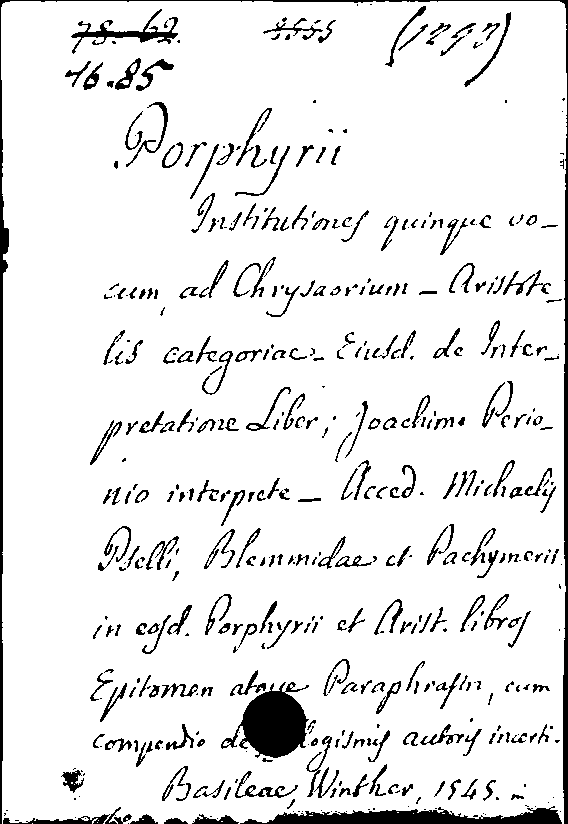 78.62.
8555
(1293)
16.85
Porphyrii
Institutiones quinque vo-
cum, ad Chrysaorium - Aristote-
lis categoriae - Eiusd. de Inter-
pretatione Liber; Joachimo Perio-
nio interprete - Acced. Michaelis
Pselli, Blemmidae et Pachymerii
in eosd. Porphyrii et Arist. libros
Epitomen atque Paraphrasin, cum
compendio de logismis autoris incerti.
Basileae, Winther, 1545.